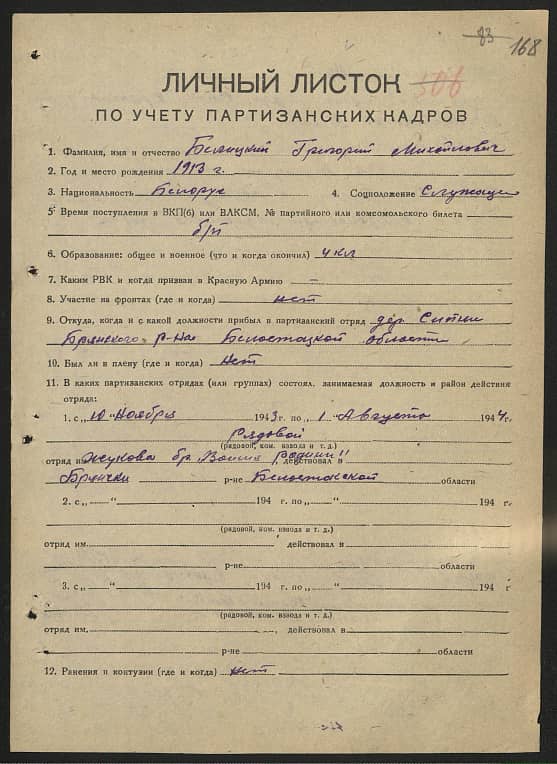 83
168
306
ЛИЧНЫЙ ЛИСТОК
ПО УЧЕТУ ПАРТИЗАНСКИХ КАДРОВ
1. Фамилия, имя и отчество Григорий Михайлович
2. Год и место рождения 1913 г.
3. Национальность Белорус 4. Соцположение Служащий
5. Время поступления в ВКП(б) или ВЛКСМ, № партийного или комсомольского билета
б/п
6. Образование: общее и военное (что и когда окончил) 4 кл
7. Каким РВК и когда призван в Красную Армию –
8. Участие на фронтах (где и когда) нет
9. Откуда, когда и с какой должности прибыл в партизанский отряд дер.
Брянского р-на Белостоцкой области
10. Был ли в плену (где и когда) Нет
11. В каких партизанских отрядах (или группах) состоял, занимаемая должность и район действия
отряда:
1. с „10“ Ноября 1943 г. по „1“ Августа 1944 г.
Рядовой
(рядовой, ком. взвода и т. д.)
отряд им. Жукова бр. Родину" действовал в
р-не Белостокской области
2. с „ “ 194 г. по „ “ 194 г.
(рядовой, ком. взвода и т. д.)
отряд им. действовал в
р-не области
3. с „ “ 194 г. по „ “ 194 г
(рядовой, ком. взвода и т. д.)
отряд им. , действовал в
р-не области
12. Ранения и контузии (где и когда) нет